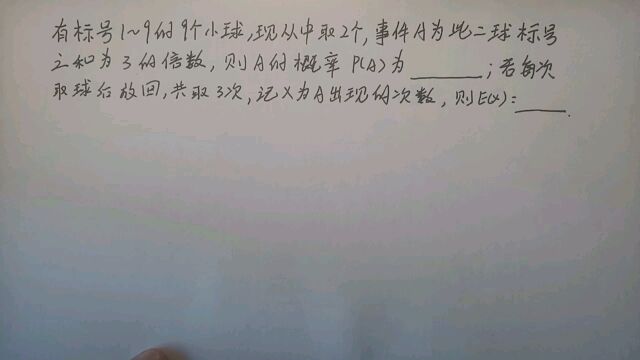 有标号1~9的9个小球,现从中取2个,事件A为此二球标号
之和为3的倍数,则A的概率P(A)为______;若每次
取球后放回,共取3次,记X为A出现的次数,则E(X)=____.